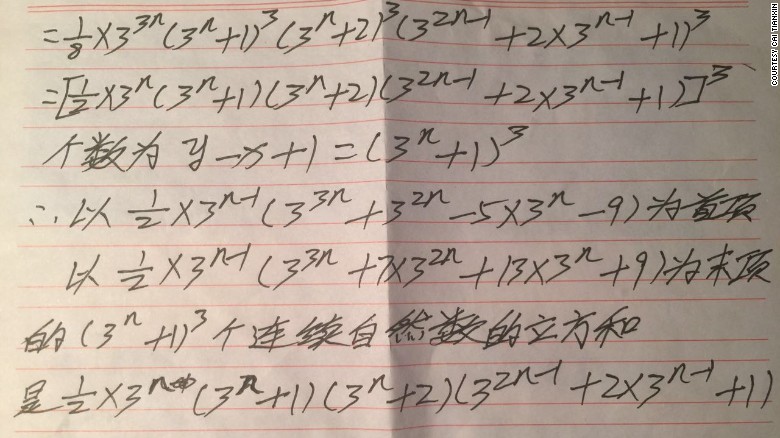 =1/8×3^3n(3^n+1)^3(3^n+2)^3(3^2n-1+2×3^n-1+1)^3
=[1/2×3^n(3^n+1)(3^n+2)(3^2n-1+2×3^n-1+1)]^3
个数为 y-x+1=(3^n+1)^3
∴以 1/2×3^n-1(3^3n+3^2n-5×3^n-9)为首项
以 1/2×3^n-1(3^3n+7×3^2n+13×3^n+9)为末项
的(3^n+1)^3个连续自然数的立方和
是 1/2×3^n(3^n+1)(3^n+2)(3^2n-1+2×3^n-1+1)
COURTESY CAI TIANXIN